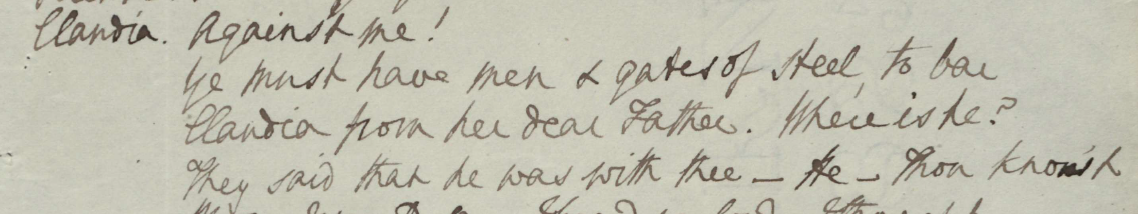 Claudia. Against me!
Ye must have men & gates of steel, to bar
Claudia from her dear Father. Where is he?
They said that he was with thee – He – Thou know'st